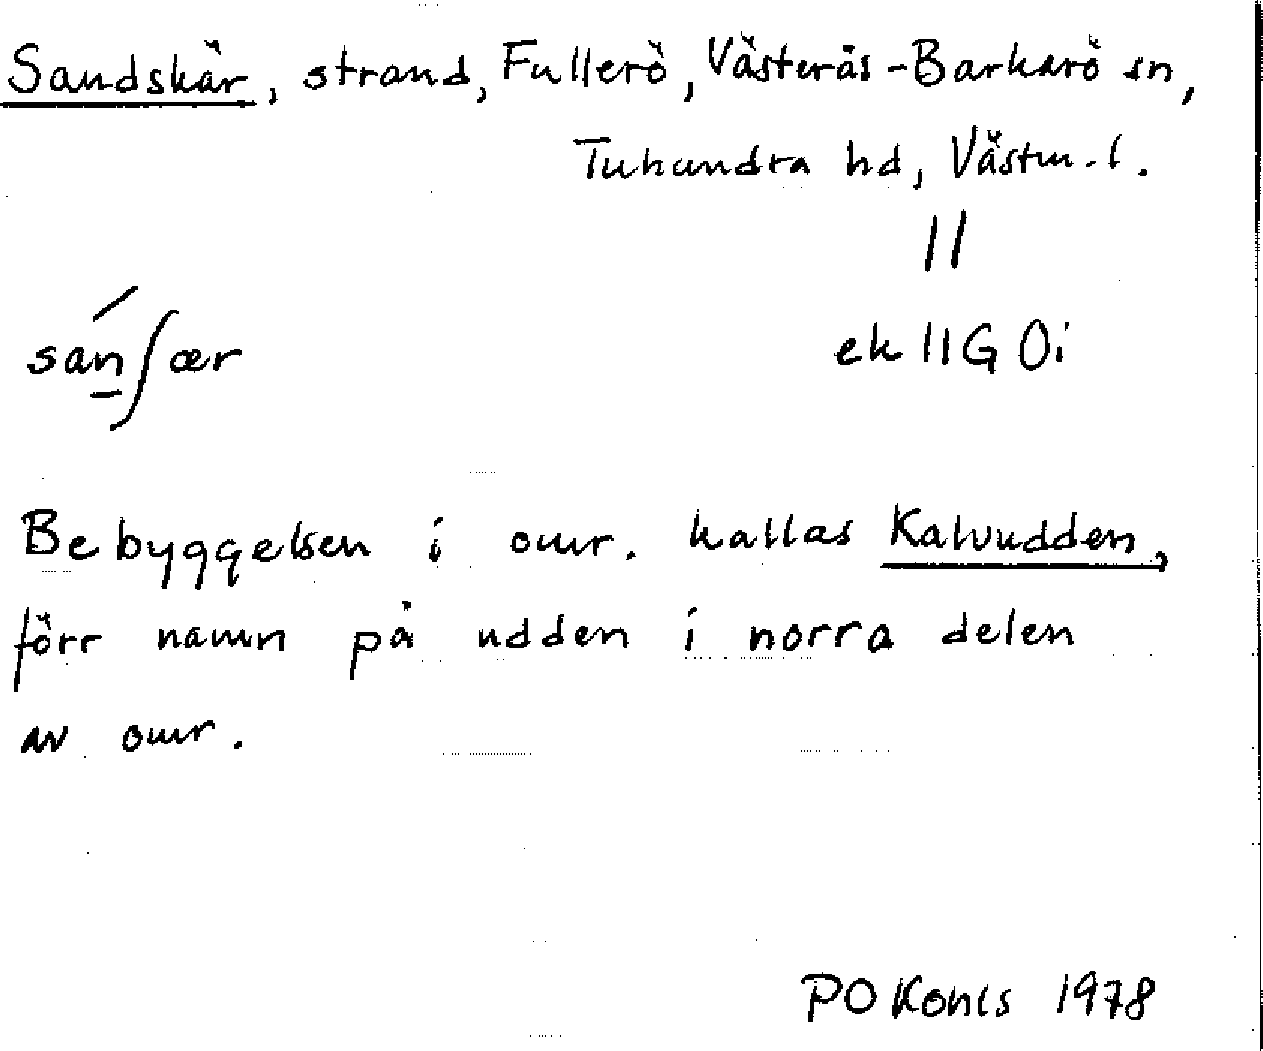 Sandskär, strand, Fullerö, Västerås-Barkarö sn,
Tuhundra hd, Västm.l.
//
sánʃær
ek 11G 0i
Bebyggelsen i omr. kallas Kalvudden,
förr namn på udden i norra delen
av omr.
PO 1978